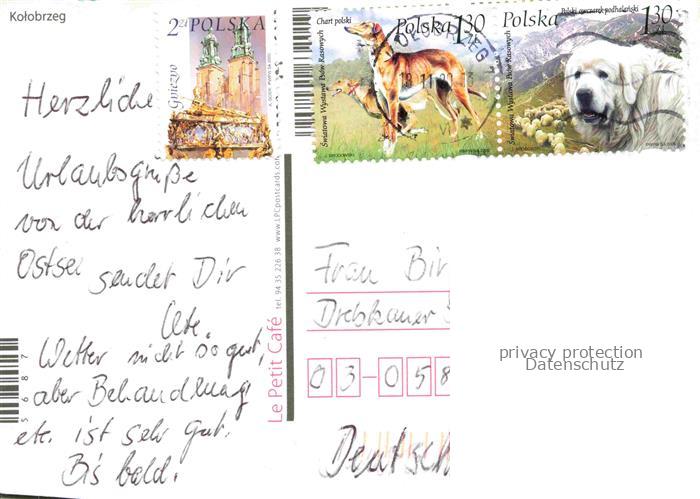 Kołobrzeg
2 zł POLSKA
Gniezno
Chart polski
Polska 1 30 zł
Światowa Wystawa Psów Rasowych
Polski owczarek podhalański
Polska 1 30 zł
Światowa Wystawa Psów Rasowych
Herzliche
Urlaubsgrüße
von der herrlichen
Ostsee sendet Dir
Ute.
Wetter nicht so gut,
aber Behandlung
etc. ist sehr gut.
Bis bald.
Le Petit Café tel. 94 35 226 38 www.LPCpostcards.com
5 6 8 7
Frau Bir
Drebkauer
03-058
Deutsch
privacy protection
Datenschutz